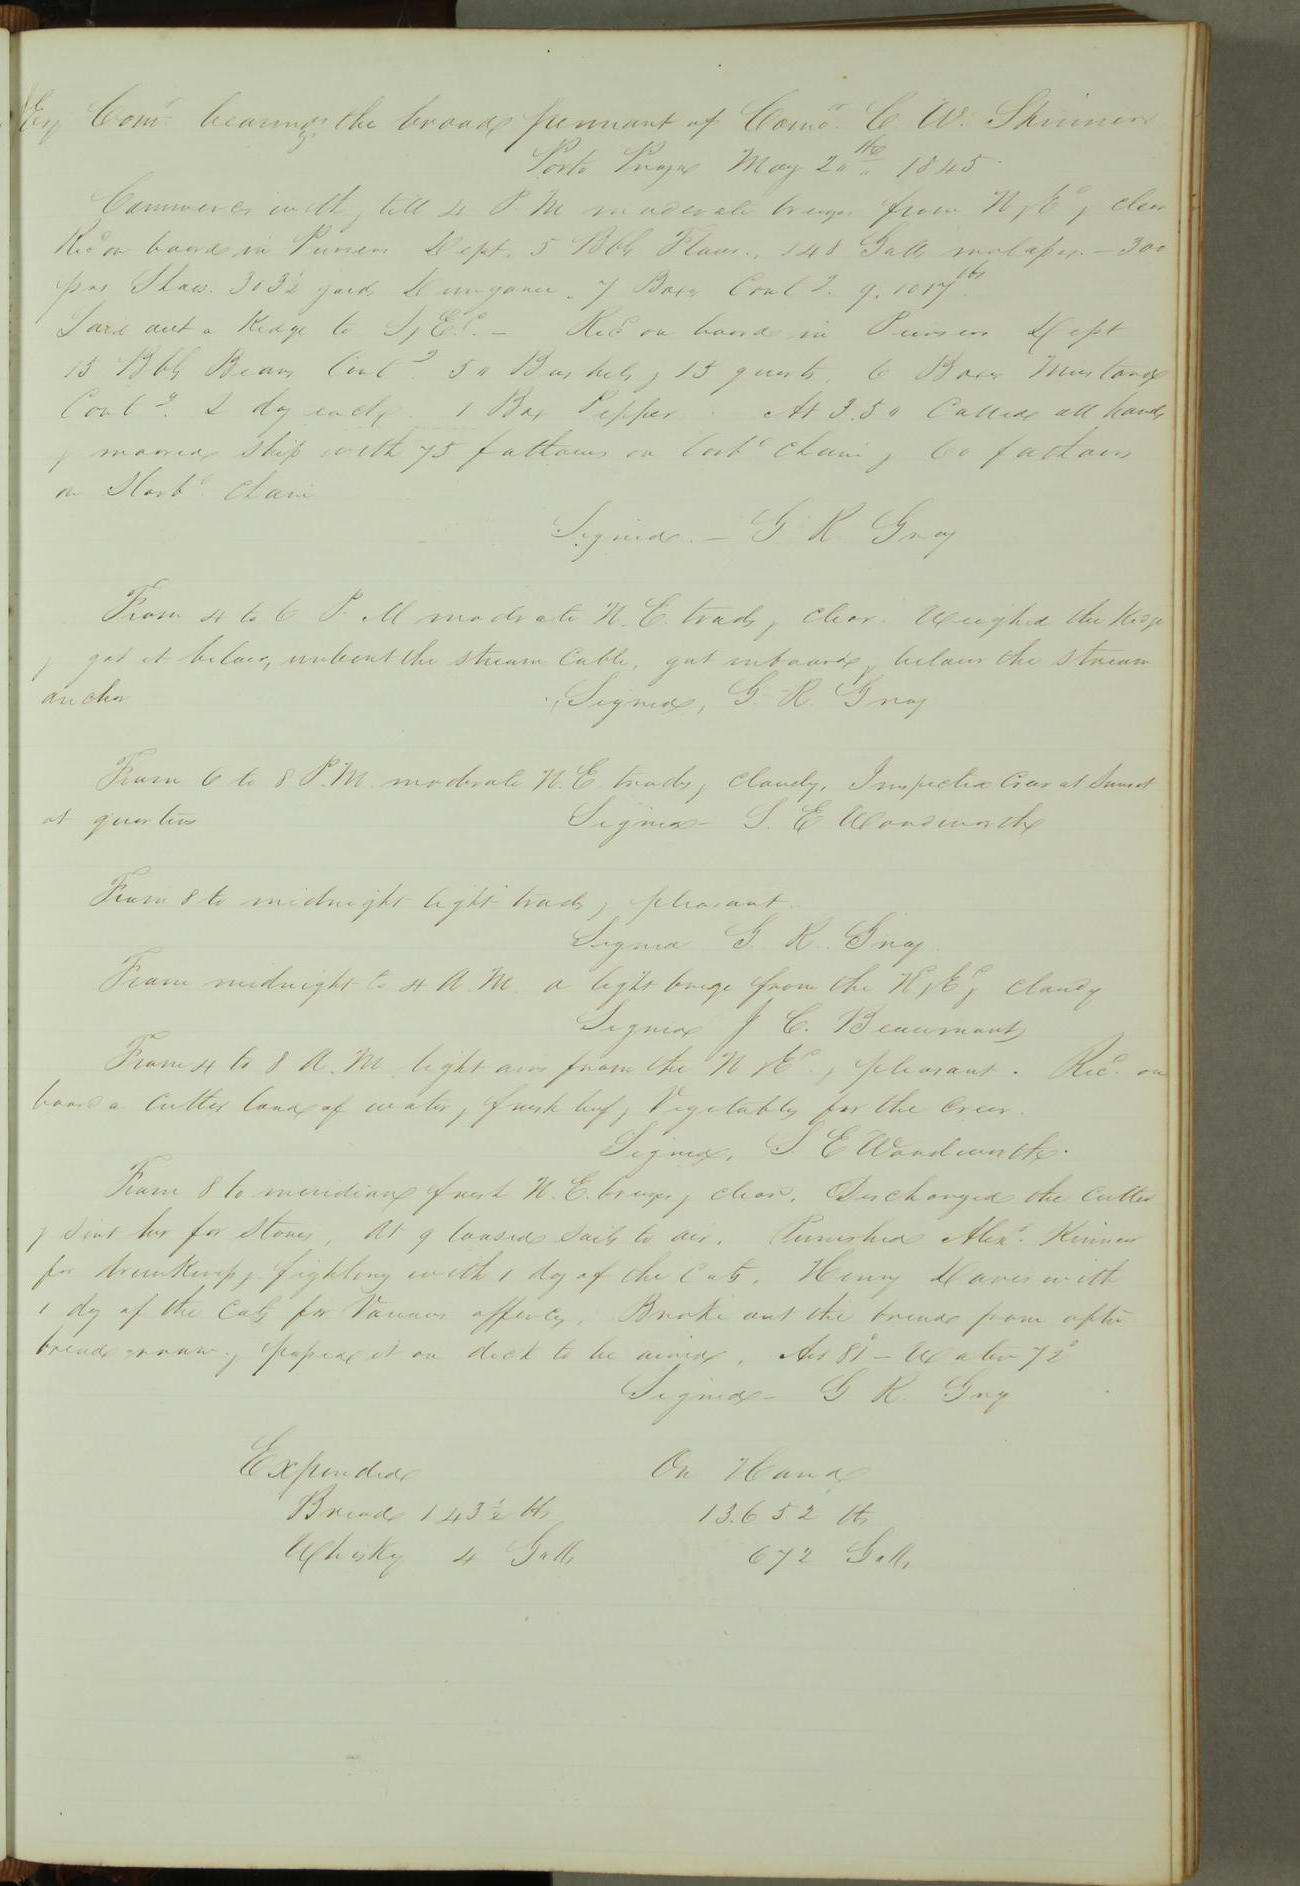 Esq Comr. bearing the broad pennant of Como. C. W. Skinner
Porto Praya May 20th 1845.
Commences with, till 4 P.M moderate breezes from N & Ed, clear
Recd on board in Pursers Dept. 5 Bbls Flour, 148 Galls molasses. - 300
prs Shoes. 303½ yards Dungaree. 7 Boxes Contg.
Laid out a Kedge to S & Ed. - Recd on board in Pursers Dept
15 Bbls Beans Contg. 50 Bushels & 15 quarts. 6 Boxes Mustard
Contg. 2 dz each. 1 Box Pepper. At 3.50 Called all hands
& moored Ship with 75 fathoms on larbd chain & 60 fathoms
on Starbd. Chain
Signed. - G R Gray
From 4 to 6 P.M moderate N.E. trades & clear. Weighed the Kedge
& got it below, unbent the stream Cable, got inboard & below the stream
anchor Signed, G. R. Gray
From 6 to 8 P.M. moderate N.E trades & cloudy. Inspected Crew at Sunset
at quarters Signed - S. E Woodworth
From 8 to midnight light trades & pleasant.
Signed G. R. Gray
From midnight to 4 A.M. a light breeze from the Nd & Ed & cloudy
Signed J C. Beaumont
From 4 to 8 A.M. light airs from the N & Ed. & pleasant. Recd. on
board a Cutter load of water, fresh beef & Vegetables for the Crew.
Signed, S. E Woodworth.
From 8 to meridian fresh N.E. breezes & clear. Discharged the Cutter
& sent her for Stones, At 9 loosed sails to air. Punished Alexr.
for drunkeness & fighting with 1 dz of the Cats. Henry Davis with
1 dz of the Cats for Various offences. Broke out the bread from after
bread room & passed it on deck to be aired, Air 81° - Water 72°
Signed - G R. Gray
Expended On Hand
Bread 143½ lbs 13.652 lbs
Whisky 4 Galls 672 Galls